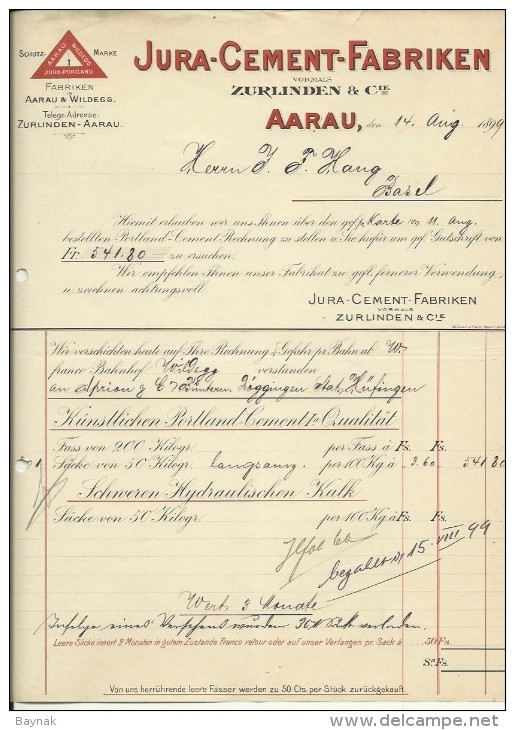 SCHUTZ- MARKE
AARAU WILDEGG
1
JURA-PORTLAND
FABRIKEN
IN
AARAU & WILDEGG.
Telegr.-Adresse:
ZURLINDEN-AARAU.
JURA-CEMENT-FABRIKEN
VORMALS
ZURLINDEN & CIE
AARAU, den 14. Aug. 1899
Herrn J. F. Hang
Basel
Hiemit erlauben wir uns Ihnen über den gefl. Karte vo 11. Aug.
bestellten Portland-Cement Rechnung zu stellen u. Sie hiefür um gfl. Gutschrift von
Fr. 541.80 zu ersuchen.
Wir empfehlen Ihnen unser Fabrikat zu gefl. fernerer Verwendung
u. zeichnen achtungsvoll
JURA-CEMENT-FABRIKEN
VORMALS
ZURLINDEN & CIE
Wir verschickten heute auf Ihre Rechnung & Gefahr pr. Bahn ab W.
franco Bahnhof Wildegg verstanden
an & C Zöggingen Stat. Hüfingen
Künstlichen Portland-Cement Ia Qualität
Fass von 200 Kilogr. per Fass à Fs.
Säcke von 50 Kilogr. langsam per 100 Kg à Fs. 3.60 541.80
Schweren Hydraulischen Kalk
Säcke von 50 Kilogr. per 100 Kg à Fs.
bezahlt d 15. VIII 99
Wert 3 Monate
Infolge eines Versehens wurden Stück verladen.
Leere Säcke innert 2 Monaten in gutem Zustande Franco retour oder auf unser Verlangen pr. Sack à .50 Fs.
Sa Fs.
Von uns herrührende leere Fässer werden zu 50 Cts. per Stück zurückgekauft.
Baynak
www.delcampe.net